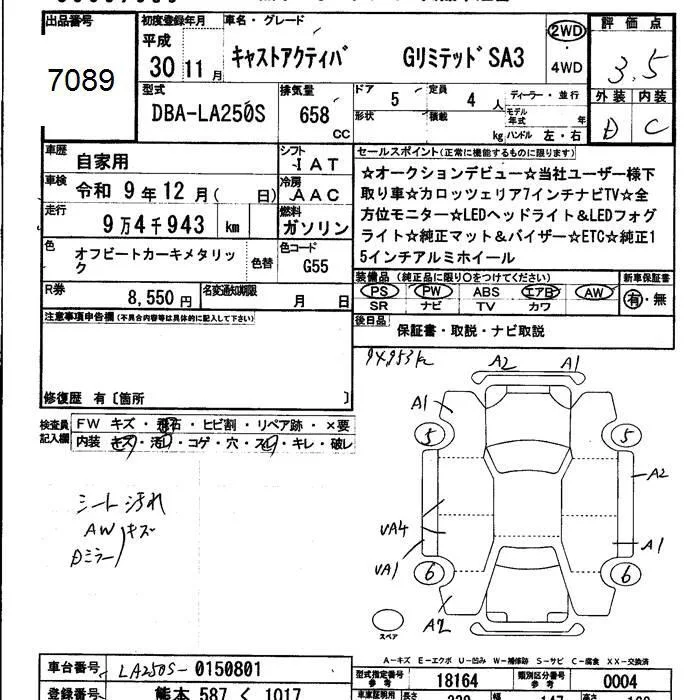 出品番号 初度登録年月 車名・グレード 評価点
7089 平成 30 11月 キャストアクティバ GリミテッドSA3 2WD・4WD 3.5
型式 排気量 ドア 定員 ディーラー・並行 外装 内装
DBA-LA250S 658 cc 5 4人 D C
形状 積載 kg モデル年式 年 ハンドル 左・右
車歴 自家用 シフト IAT セールスポイント(正常に機能するものに限ります)
車検 令和 9年12月(日) 冷房 AAC ☆オークションデビュー☆当社ユーザー様下
取り車☆カロッツェリア7インチナビTV☆全
走行 9万4千943 km 燃料 ガソリン 方位モニター☆LEDヘッドライト&LEDフォグ
ライト☆純正マット&バイザー☆ETC☆純正1
色 オフビートカーキメタリック 色替 色コード G55 5インチアルミホイール
装備品(純正品に限り○をつけてください) 新車保証書
PS PW ABS エアB AW 有・無
SR ナビ TV カワ
R券 8,550円 名変通知期限 月 日
後日品 保証書・取説・ナビ取説
注意事項申告欄(不具合内容等は具体的に記入して下さい)
修復歴 有〔箇所 〕
検査員記入欄 FW キズ・飛石・ヒビ割・リペア跡・×要
内装 キズ・汚れ・コゲ・穴・スレ・キレ・破レ
94953k
A2 A1
A1
5 5
A2
シート汚れ
AW キズ
Dミラー
UA4
A1
UA1
6 6
A2
スペア
A-キズ E-エクボ U-凹み W-補修跡 S-サビ C-腐食 XX-交換済
車台番号 LA250S-0150801 型式指定番号 参考 18164 類別区分番号 参考 0004
登録番号 熊本 587 く 1017 車車証明用 長さ 339 幅 147 高さ